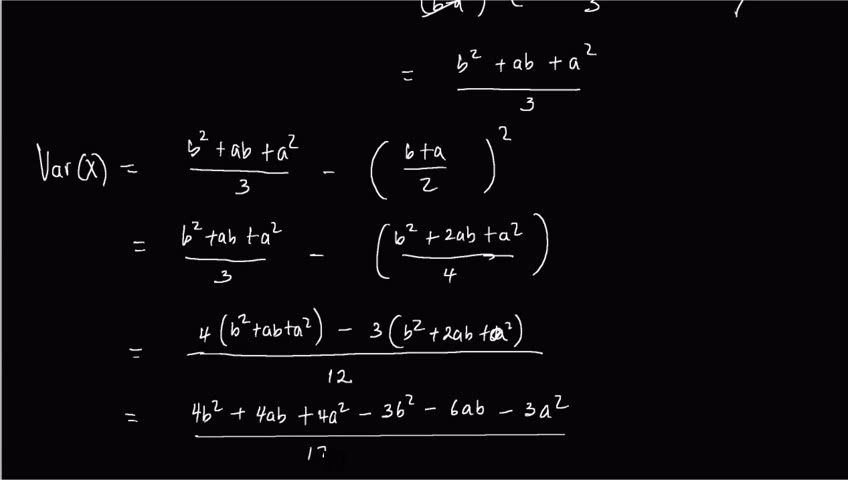 = b² + ab + a² / 3
Var(X) = b² + ab + a² / 3 - ( b + a / 2 )²
= b² + ab + a² / 3 - ( b² + 2ab + a² / 4 )
= 4(b² + ab + a²) - 3(b² + 2ab + a²) / 12
= 4b² + 4ab + 4a² - 3b² - 6ab - 3a² / 12